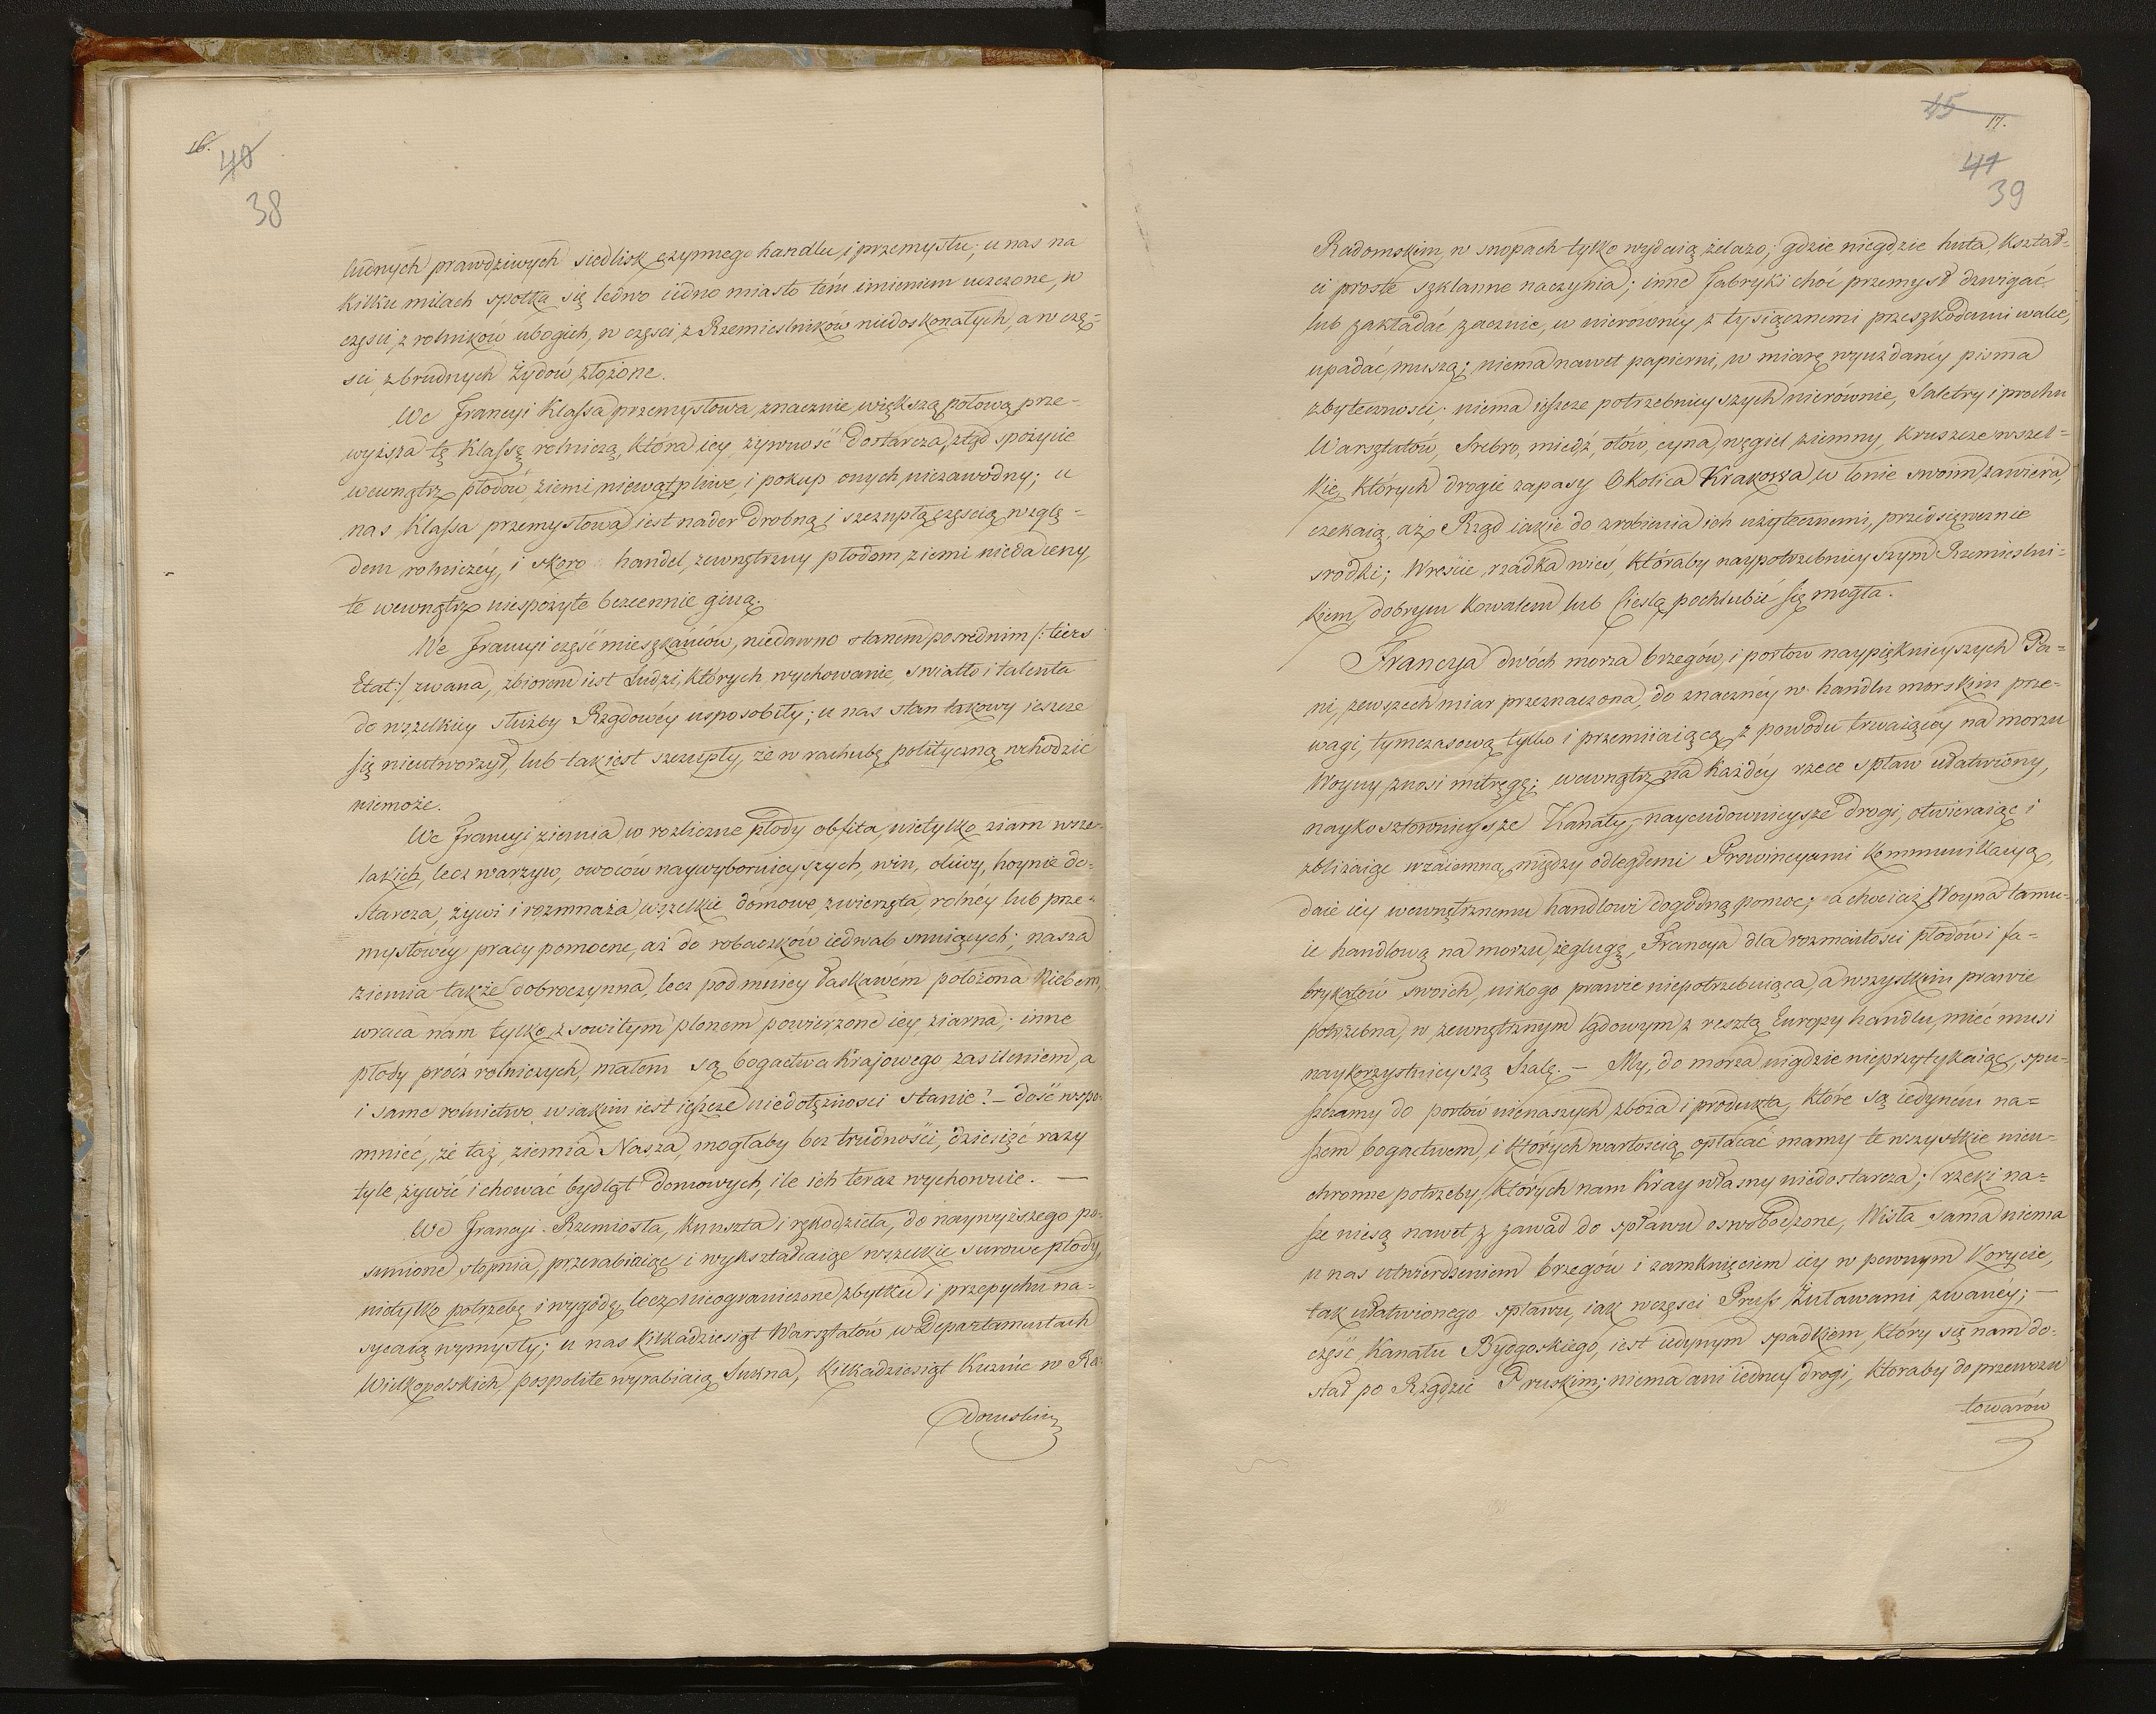 16.
40
38
ludnych prawdziwych siedlisk czynnego handlu i przemysłu; u nas na
kilku milach spotka się ledwo iedno miasto tém imieniem uczczone, w
części z rolników ubogich, w części z Rzemieslników niedoskonałych, a w czę=
sci z brudnych Żydów złożone.
We Francyi Klassa przemysłowa znacznie większą połową prze=
wyższa tę Klassę rolniczą, która iey żywność dostarcza, ztąd spożycie
wewnątrz płodów ziemi niewątpliwe, i pokup onych niezawodny; u
nas Klassa przemysłowa iest nader drobną i szczupłą częscią wzglę=
dem rolniczéy, i skoro handel zewnętrzny płodom ziemi nieda ceny,
te wewnątrz niespożyte bezcennie giną.
We Francyi część mieszkańców, niedawno stanem posrednim /: tiers
Etat :/ zwana, zbiorem iest Ludzi, których wychowanie, swiatło i talenta
do wszelkiey służby Rządowéy usposobiły; u nas stan takowy ieszcze
się nieutworzył, lub tak iest szczupły, że w rachubę polityczną wchodzić
niemoże.
We Francyi ziemia w rozliczne płody obfita, nietylko ziarn wsze=
lakich, lecz warzyw, owoców naywybornieyszych, win, oliwy, hoynie do=
starcza, żywi i rozmnaża wszelkie domowe zwierzęta, rolnéy lub prze=
mysłowéy pracy pomocne, aż do robaczków iedwab snuiących; nasza
ziemia także dobroczynna, lecz pod mniey łaskawém położona Niebem,
wraca nam tylko z sowitym plonem powierzone iey ziarna; inne
płody prócz rolniczych, małem są bogactwa Krajowego zasileniem, a
i same rolnictwo w iakim iest ieszcze niedołężnosci stanie? – dość wspo=
mnieć, że taż ziemia Nasza, mogłaby bez trudności, dziesięć razy
tyle żywić i chować bydląt domowych, ile ich teraz wychowuie. —
We Francyi Rzemiosła, kunszta i rękodzieła, do naywyższego po=
sunione stopnia, przerabiaiąc i wykształcaiąc wszelkie surowe płody,
nietylko potrzebę i wygodę, lecz nieograniczone zbytku i przepychu na=
sycaią wymysły; u nas kilkadziesiąt Warsztatów w Departamentach
Wielkopolskich, pospolite wyrabiaią Sukna, Kilkadziesiąt Kuznic w Ra=
domskim
45
17.
41
39
Radomskim, w snopach tylko wydaią żelazo; gdzie niegdzie huta, kształ=
ci proste szklanne naczynia; inne Fabryki choć przemysł dzwigać
lub zakładać zacznie, w nierównéy z tysiącznemi przeszkodami walce,
upadać muszą; niema nawet papierni, w miarę wyuzdanéy pisma
zbyteczności; niema ieszcze potrzebnieyszych nierównie, Saletry i prochu
Warsztatów, Srebro, miedź, ołów, cyna, węgiel ziemny, kruszcze wszel=
kie, których drogie zapasy Okolica Krakowa w łonie swoim zawiéra,
czekaią, aż Rząd iakie do zrobienia ich użytecznemi, przedsięweznie
srodki; Wreście, rzadka wieś, któraby naypotrzebnieyszym Rzemieslni=
kiem, dobrym Kowalem lub Cieslą pochlubić się mogła.
Francya dwóch morza brzegów, i portów naypięknieyszych Pa=
ni, zewszech miar przeznaczona, do znacznéy w handlu morskim prze=
wagi, tymczasową tylko i przemiiaiącą z powodu trwaiącey na morzu
Woyny znosi mitręgę; wewnątrz na każdéy rzece spław ułatwiony,
naykosztownieysze Kanały, naycudownieysze drogi, otwieraiąc i
zbliżaiąc wzaiemną między odległemi Prowincyami kommunikacyą,
daie iey wewnętrznemu handlowi dogodną pomoc; a chociaż Woyna tamu=
ie handlową na morzu żeglugę, Francya dla rozmaitości płodów i fa=
brykatów swoich, nikogo prawie niepotrzebuiąca, a wszystkim prawie
potrzebna, w zewnętrznym lądowym z resztą Europy handlu, mieć musi
naykorzystnieyszą Szalę. – My, do morza nigdzie nieprzytykaiąc, spu=
szczamy do portów nienaszych, zboża i produkta, które są iedyném na=
szem bogactwem, i których wartoscią opłacać mamy te wszystkie nieu=
chronne potrzeby, których nam Kray własny niedostarcza; rzeki na=
sze niesą nawet z zawad do spławu oswobodzone, Wisła sama niema
u nas utwierdzeniem brzegów i zamknięciem iey w pewnym Korycie,
tak ułatwionego spławu, iak w części Pruss Żuławami zwanéy; —
część Kanału Bydgoskiego, iest iedynym spadkiem, który się nam do=
stał po Rządzie Pruskim; niema ani iedney drogi, któraby do przewozu
towarów